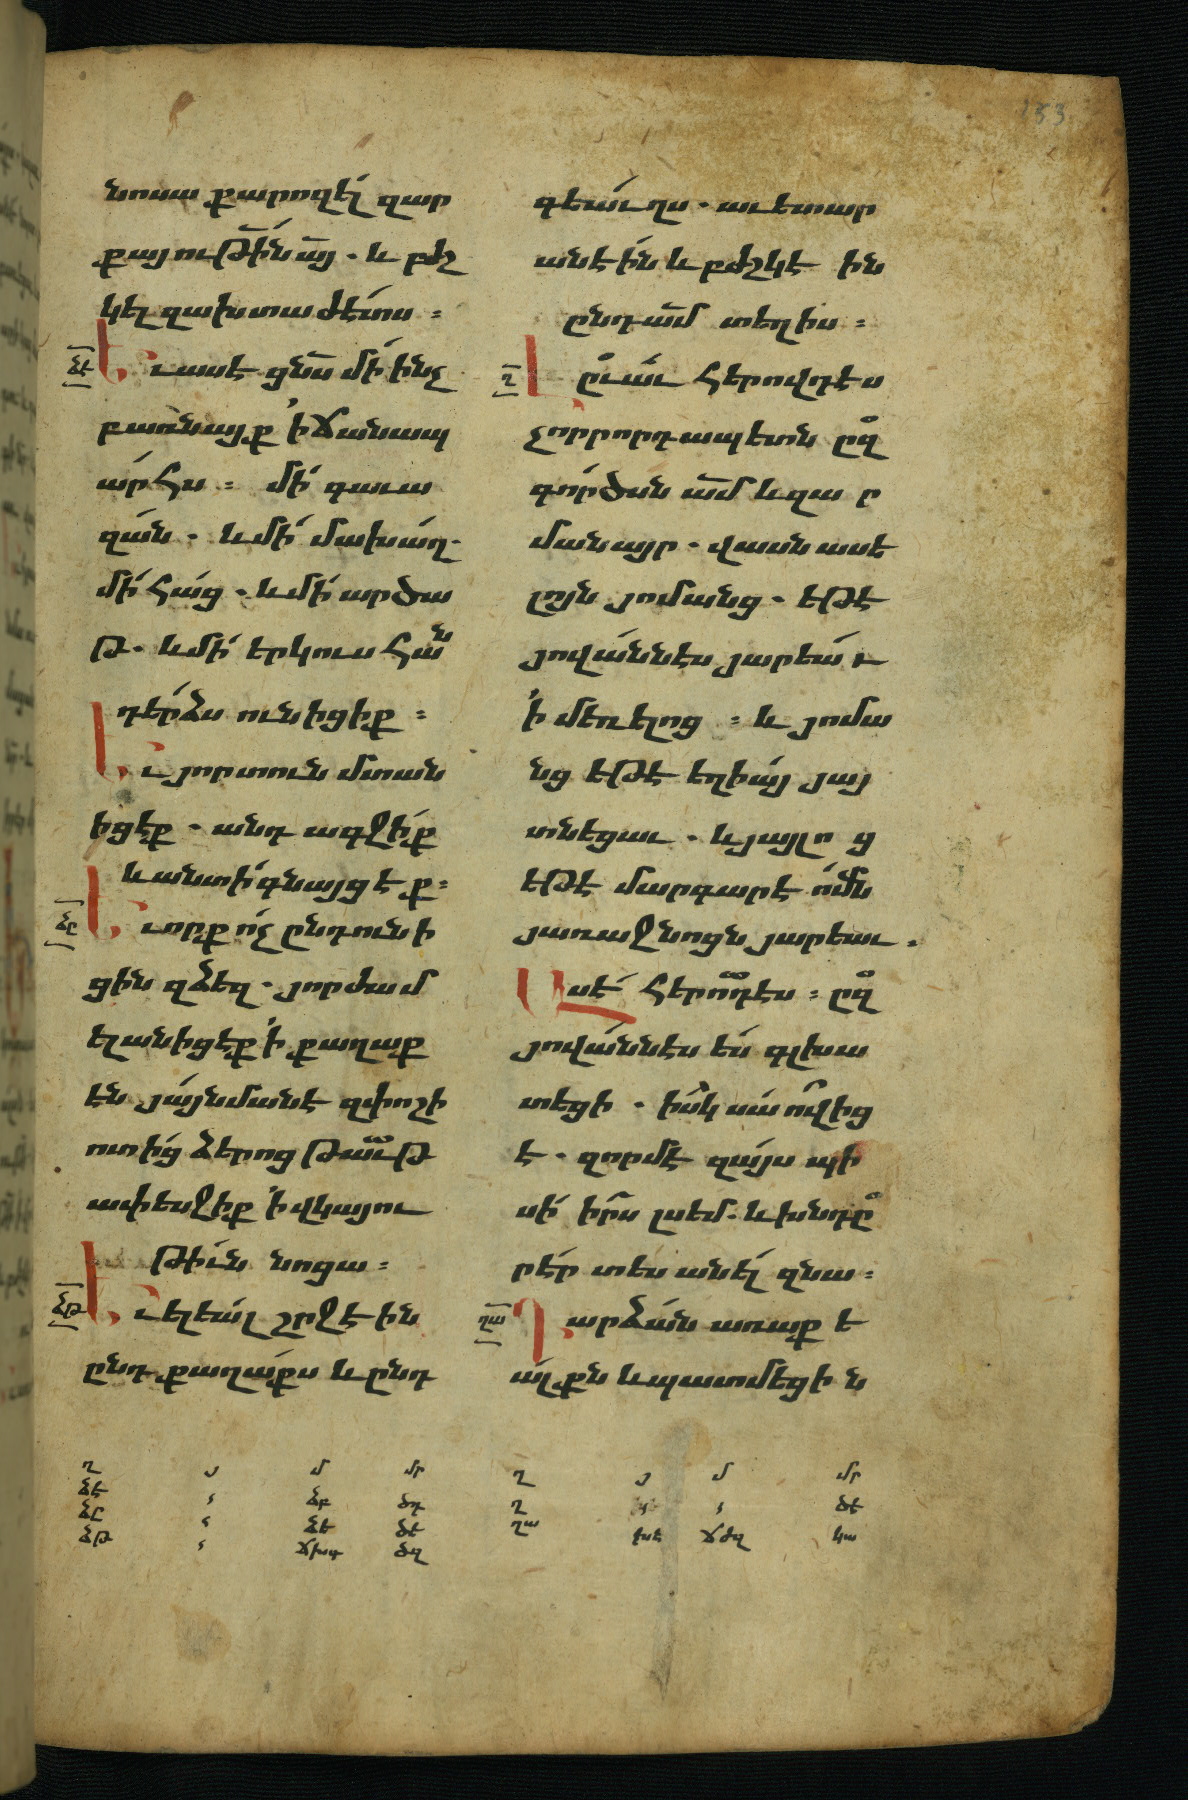 նոսա քարոզել զար
քայութի՟ն ա՟յ . և բժշ
կել զախտաժէտս :
ձէ Եւ ասէ ցնս՟ մի ինչ
բառնայք ՚ի ճանապ
արհս : մի գաւա
զան . և մի մախաղ .
մի հաց . և մի արծա
թ . և մի երկուս հան
դերձս ունիցիք :
Եւ յոր տուն մտան
իցէք . անդ ագջիք
և անտի գնայցէք :
ձը Եւ որք ոչ ընդունի
ցին զձեզ . յորժամ
ելանիցէք ՚ի քաղաք
էն յայնմանէ զփոշի
ոտից ձերոց թաւթ
ափեսջիք ՚ի վկայու
թիւն նոցա :
ձթ Եւ ելեալ շրջէին
ընդ քաղաքս և ընդ
գեաւղս . աւետար
անէին և բժշկէին
ընդամ՟ տեղիս :
ղ Լըւաւ հերովդէս
չորրորդապետն ըզ
գործսն ամ՟ և զա ր
մանայր . վասն ասե
լոյն յոմանց . եթէ
յովաննէս յարեաւ
՚ի մեռելոց : և յոմա
նց եթէ եղիայ յայ
տնեցաւ . և յայլո ց
եթէ մարգարէ ոմն
յառաջնոցն յարեաւ .
Ասէ հերովդէս : ըզ
յովաննէս ես գլխա
տեցի . իսկ սա ովից
է . զորմէ զայս պի
սի իրս լսեմ . և խնդը
րէր տեսանել զնա :
ղա Դարձան առաքե
ալքն և պատմեցի ն
ղ յ մ մր
ձէ , ձբ ծդ
ձը , ձե ծե
ձթ , ճխդ ծզ
ղ յ մ մր
ղ , ծէ
ղա ճժզ կա